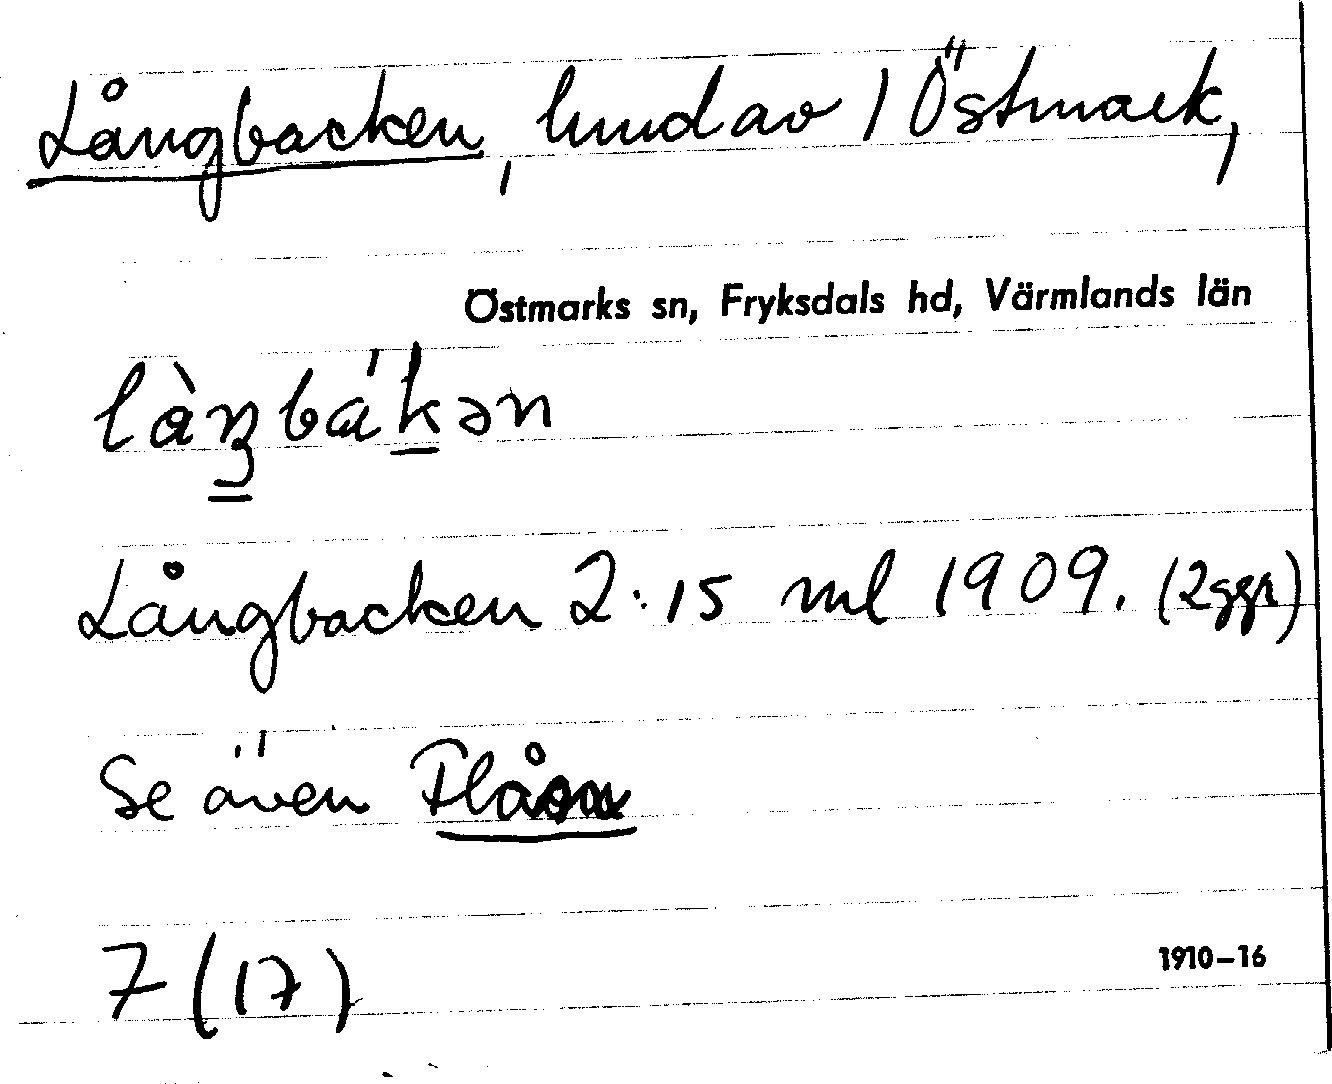 Långbacken, hmd av 1 Östmark,
Östmarks sn, Fryksdals hd, Värmlands län
làŋbák'ən
Långbacken 2:15 ml 1909. (2ggr)
Se även Flåsa
7 (17)
1910–16